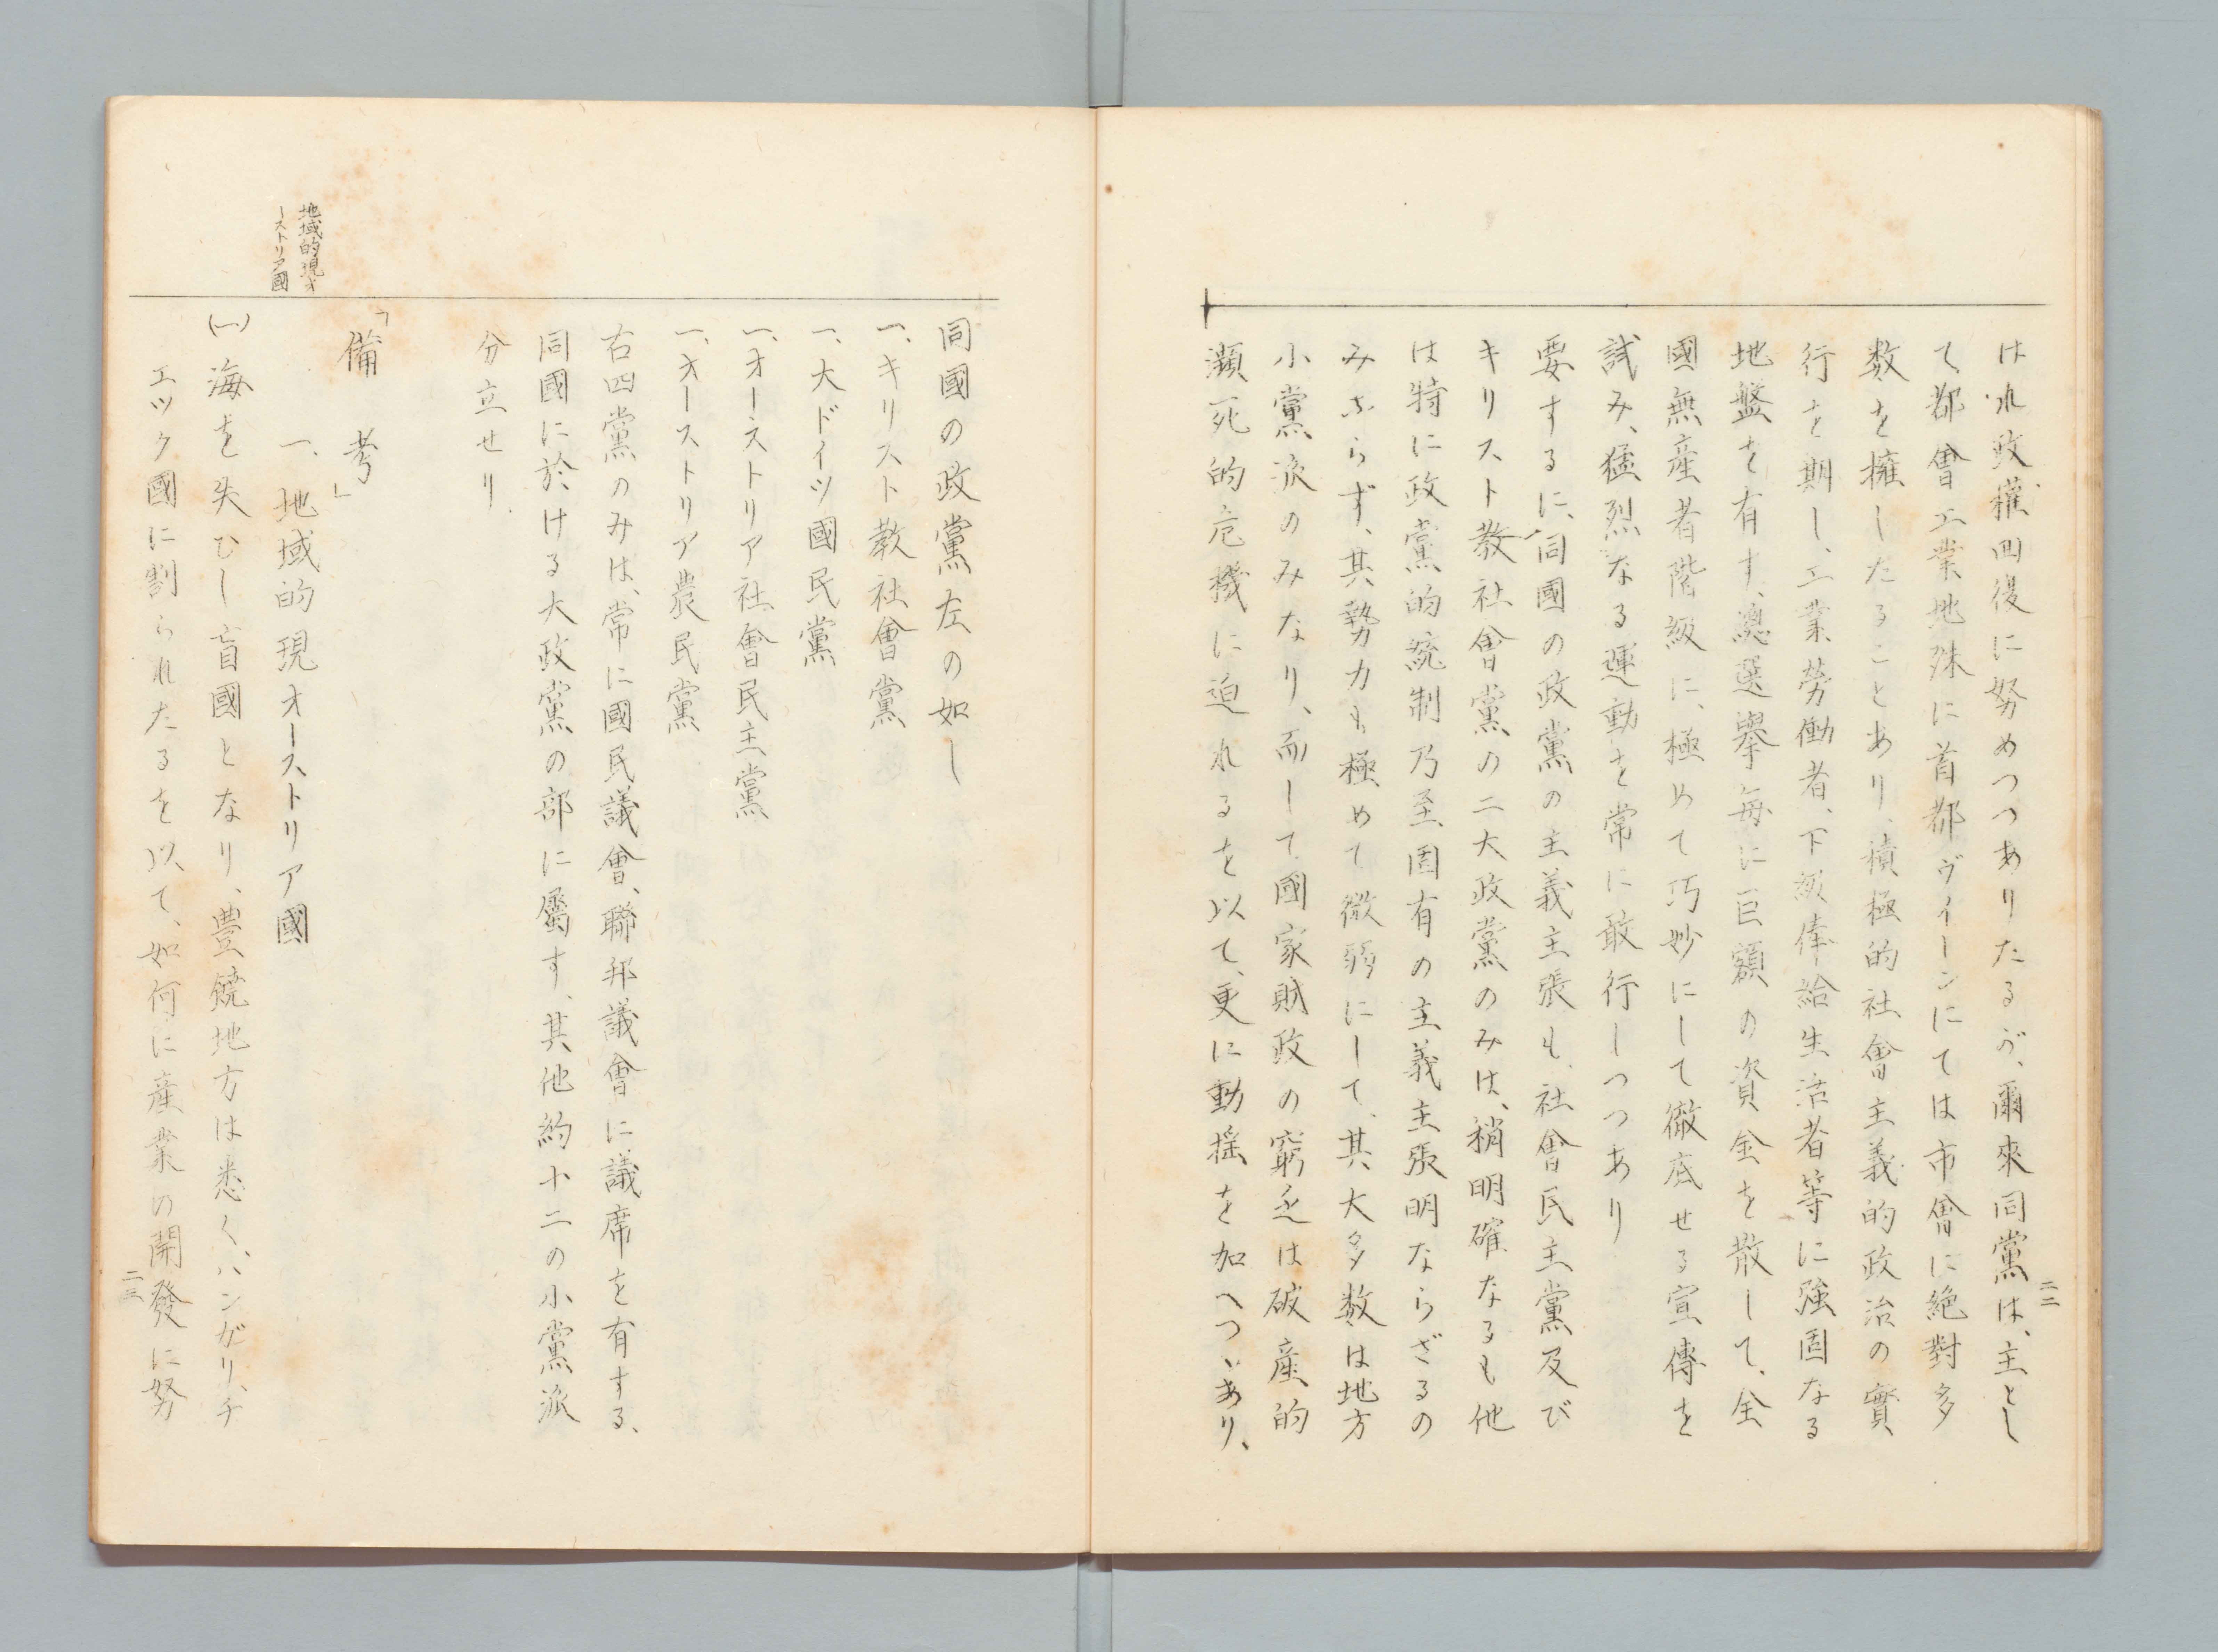 二二
はれ政権回復に努めつつありたるが、爾來同黨は、主とし
て都會工業地殊に首都ヴイーンにては市會に絶對多
数を擁したることあり、積極的社會主義的政治の實
行を期し、工業勞働者、下級俸給生活者等に強固なる
地盤を有す、總選擧毎に巨額の資金を散して、全
國無産者階級に、極めて巧妙にして徹底せる宣傳を
試み、猛烈なる運動を常に敢行しつつあり
要するに、同國の政黨の主義主張も、社會民主黨及び
キリスト教社會黨の二大政黨のみは、稍明確なるも他
は特に政黨的統制乃至固有の主義主張明ならざるの
みならず、其勢力も極めて微弱にして、其大多数は地方
小黨派のみなり、而して國家財政の窮乏は破産的
瀕死的危機に迫れるを以て、更に動揺を加へつゝあり、
同國の政黨左の如し
一、キリスト教社會黨
一、大ドイツ國民黨
一、オーストリア社會民主黨
一、オーストリア農民黨
右四黨のみは、常に國民議會、聯邦議會に議席を有する、
同國に於ける大政黨の部に屬す、其他約十二の小黨派
分立せり
「備考」
地域的現オ
ーストリア國
一、地域的現オーストリア國
(一)海を失ひし盲國となり、豊饒地方は悉く、ハンガリ、チ
エツク國に割られたるを以て、如何に産業の開發に努
二三